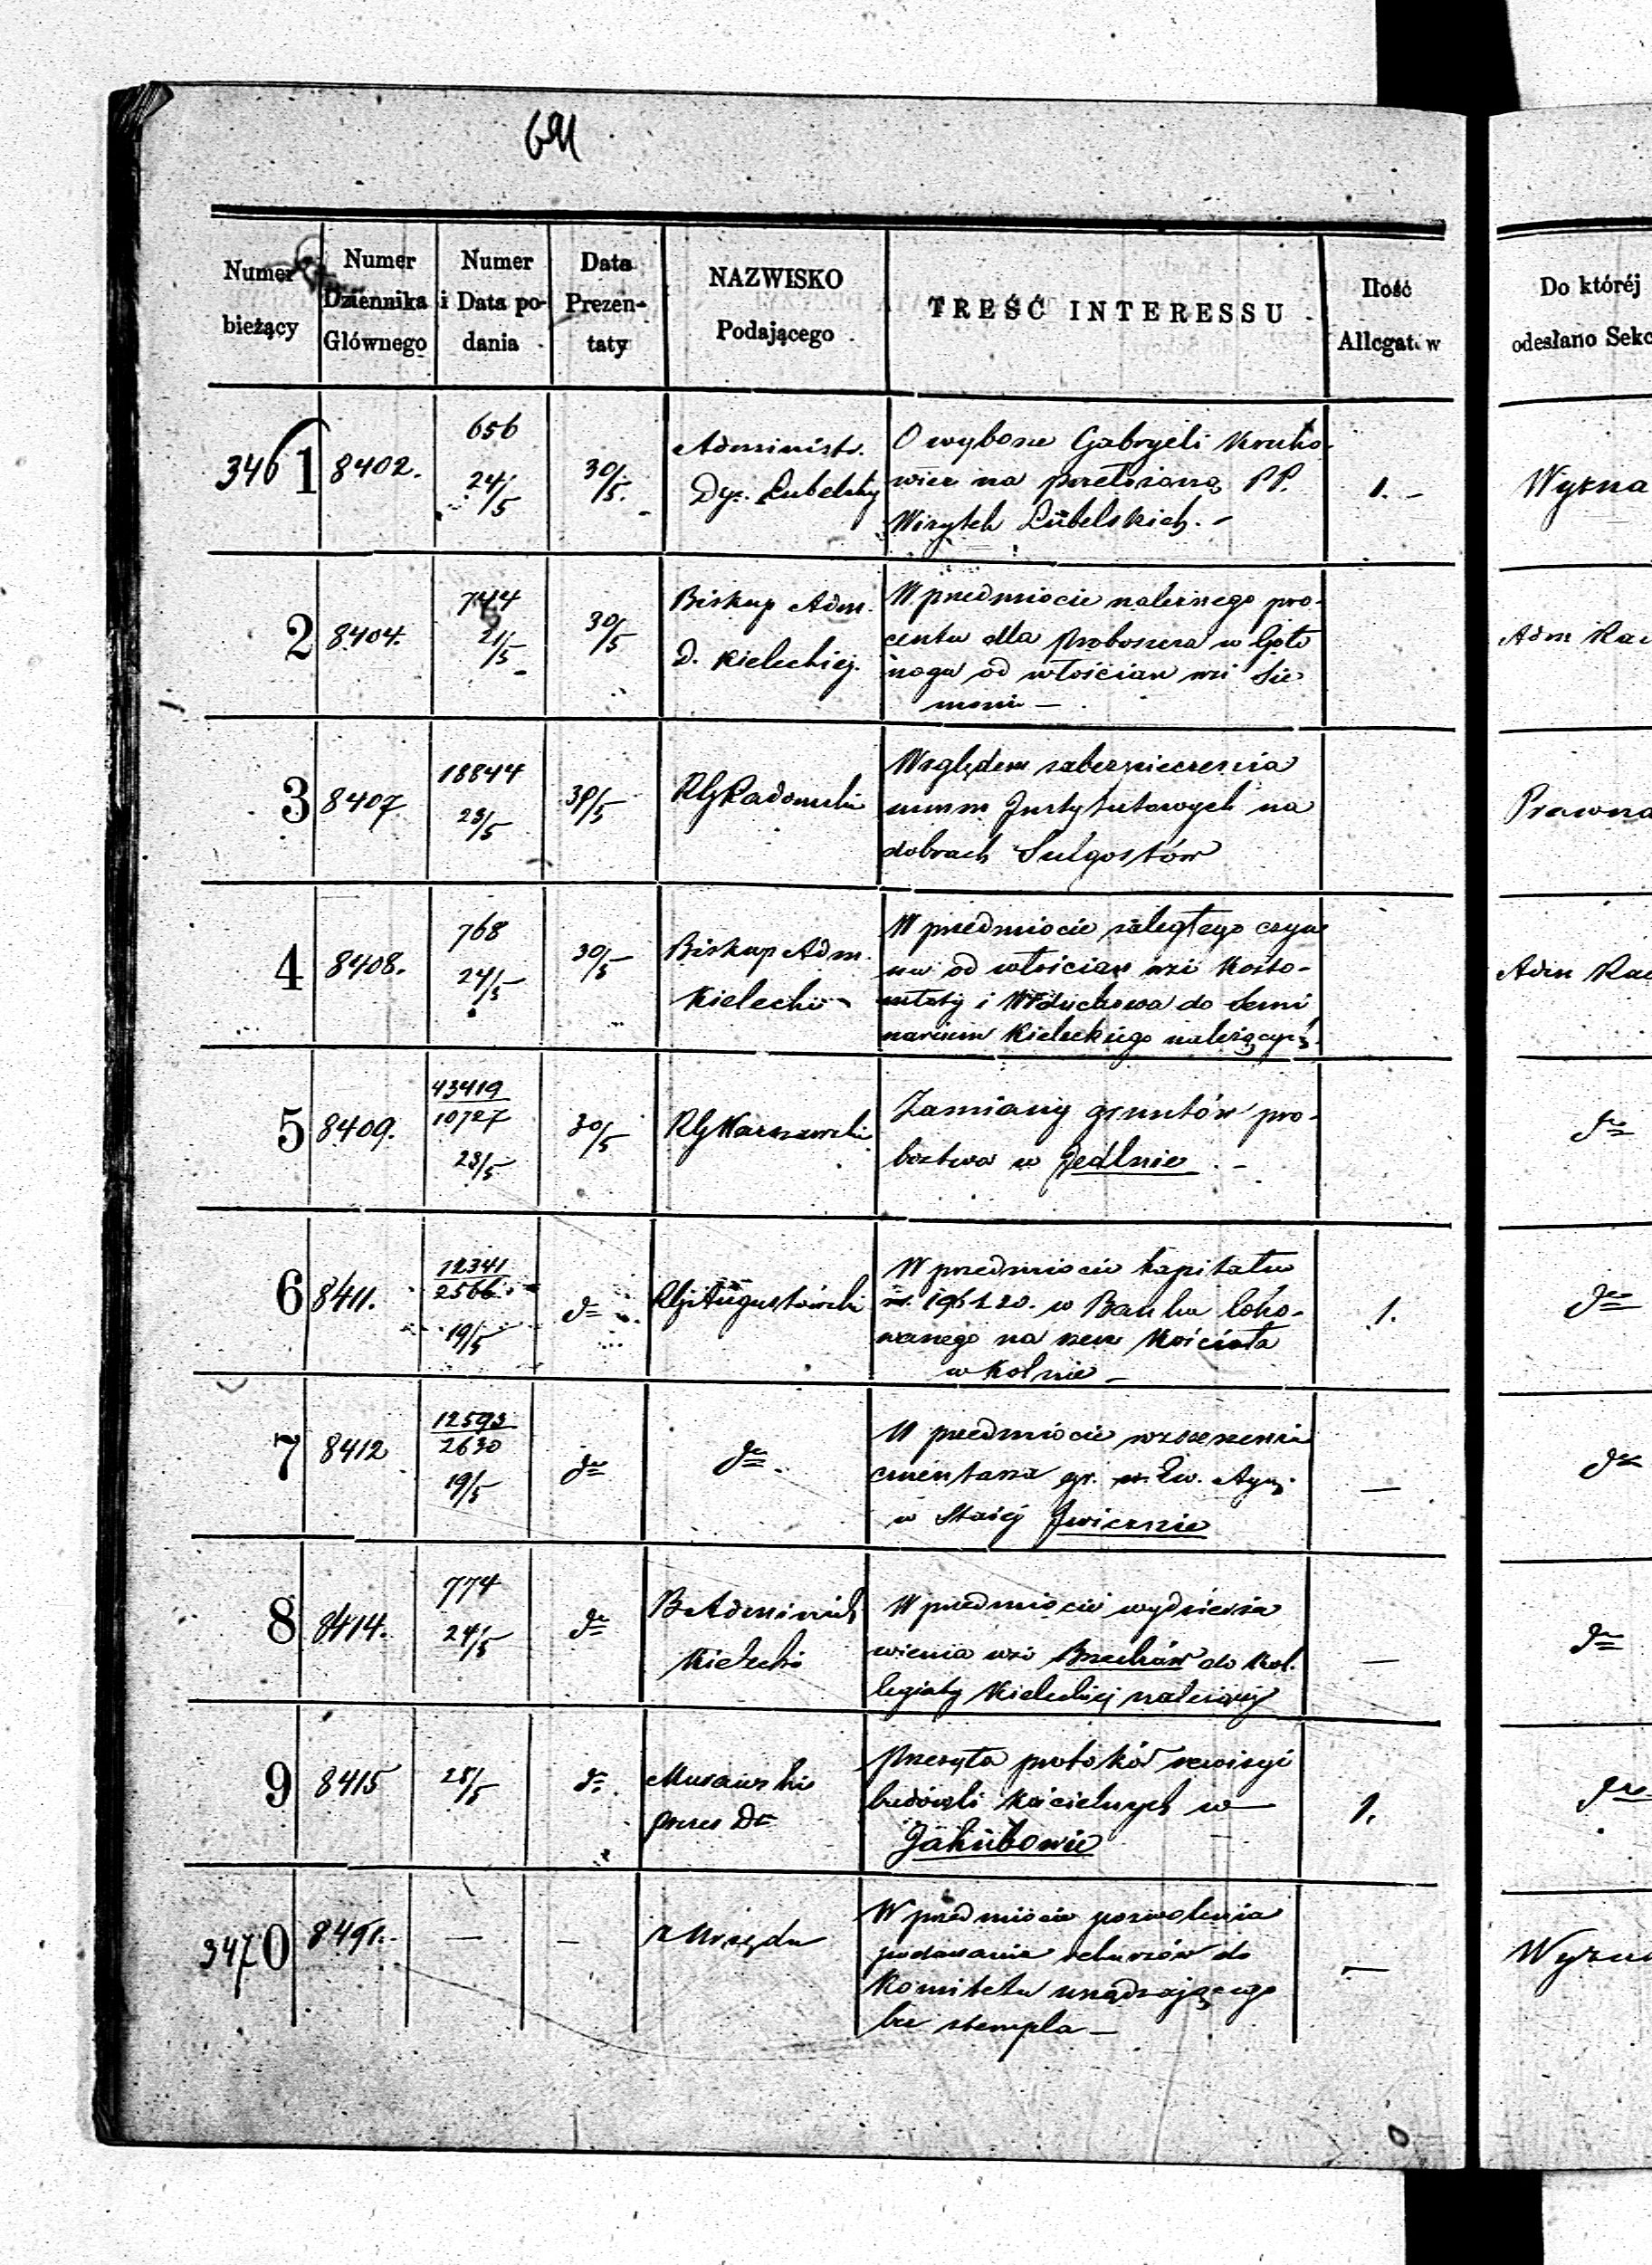 691
Numer bieżący
Numer Dziennika Głównego
Numer i Data podania
Data Prezentaty
NAZWISKO Podającego
TREŚĆ INTERESSU
Ilość Allegatów
Do któréj odesłano Sekc
3461
8402.
656
24/5
30/5.
Administr.
Dyz. Lubelskiy
O wyborze Gabryeli Krucho-
wiez na przełożoną PP.
Wizytek Lubelskich. -
1. -
Wyzna
2
8404.
744
21/5
30/5
Biskup Adm.
D. Kieleckiej.
W przedmiocie należnego pro-
centu dla Proboszcza w Goło
nogu od włościan wsi Sie
moni —
Adm Rac
3
8407
18844
23/5
30/5
RG Radomski
Względem zabezpieczenia
summ Instytutowych na
dobrach Sulgostów
Prawna
4
8408.
768
24/5
30/5
Biskup Adm.
Kielecki
W przedmiocie zaległego czyn
szu od włościan wsi Kosto-
młoty i
do Semi
narium Kieleckiego należących.
Adm Rac
5
8409.
43419
10727
23/5
30/5
RG Warszawski
Zamiany gruntów pro-
bostwa w Jedlnie. -
do
6
8411.
12341
2566.
19/5
do
RG Augustówski
W przedmiocie kapitału
rs. 196 k 20. w Banku loko-
wanego na rzecz Kościoła
w Kolnie -
1.
do
7
8412
12593
2630
19/5
do
do.
W przedmiocie
cmentarza gr.
w Starej
—
do
8
8414.
774
24/5
do
B Administr
Kielecki
W przedmiocie wydzierża
wienia wsi Brzechów do Kol.
legiaty Kieleckiej należącej
—
do
9
8415
25/5
do.
Murawski
prezes Dr
Przesyła protokół rewizyi
budowli Kościelnych w
Jakubowie
1.
do
3470
8491.
—
—
z Urzędu
W przedmiocie pozwolenia
podawania rekursów do
Komitetu urządzającego
bez stempla —
—
Wyzn